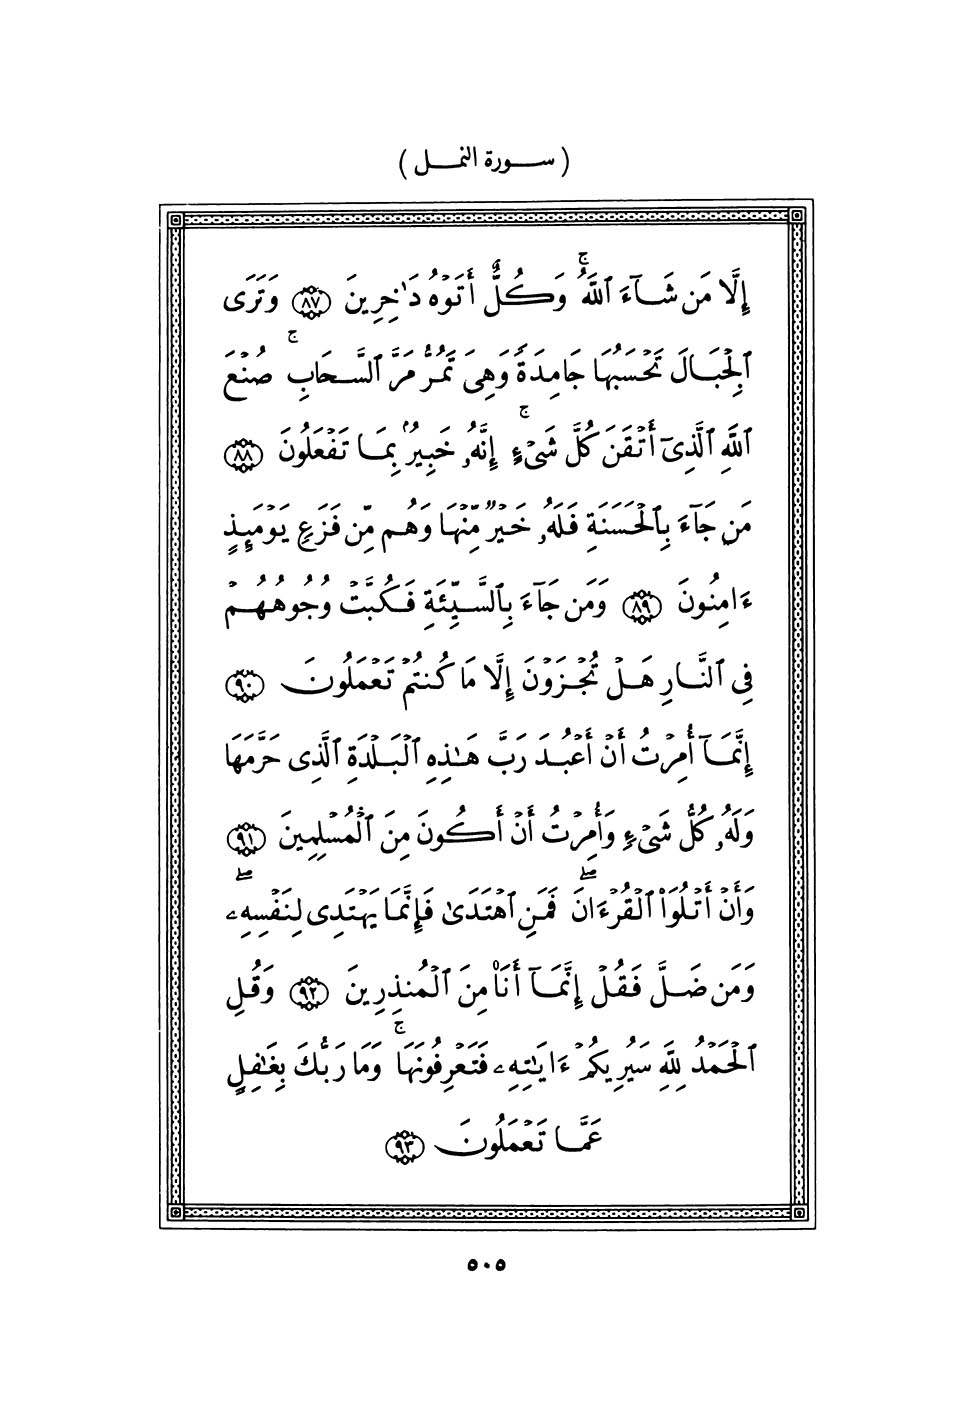 ( سورة النمل )
إِلَّا مَن شَآءَ ٱللَّهُ ۚ وَكُلٌّ أَتَوْهُ دَٰخِرِينَ ٨٧ وَتَرَى
ٱلْجِبَالَ تَحْسَبُهَا جَامِدَةً وَهِىَ تَمُرُّ مَرَّ ٱلسَّحَابِ ۚ صُنْعَ
ٱللَّهِ ٱلَّذِىٓ أَتْقَنَ كُلَّ شَىْءٍ ۚ إِنَّهُۥ خَبِيرٌۢ بِمَا تَفْعَلُونَ ٨٨
مَن جَآءَ بِٱلْحَسَنَةِ فَلَهُۥ خَيْرٌ مِّنْهَا وَهُم مِّن فَزَعٍ يَوْمَئِذٍ
ءَامِنُونَ ٨٩ وَمَن جَآءَ بِٱلسَّيِّئَةِ فَكُبَّتْ وُجُوهُهُمْ
فِى ٱلنَّارِ هَلْ تُجْزَوْنَ إِلَّا مَا كُنتُمْ تَعْمَلُونَ ٩٠
إِنَّمَآ أُمِرْتُ أَنْ أَعْبُدَ رَبَّ هَٰذِهِ ٱلْبَلْدَةِ ٱلَّذِى حَرَّمَهَا
وَلَهُۥ كُلُّ شَىْءٍ وَأُمِرْتُ أَنْ أَكُونَ مِنَ ٱلْمُسْلِمِينَ ٩١
وَأَنْ أَتْلُوَا۟ ٱلْقُرْءَانَ ۖ فَمَنِ ٱهْتَدَىٰ فَإِنَّمَا يَهْتَدِى لِنَفْسِهِۦ ۖ
وَمَن ضَلَّ فَقُلْ إِنَّمَآ أَنَا۠ مِنَ ٱلْمُنذِرِينَ ٩٢ وَقُلِ
ٱلْحَمْدُ لِلَّهِ سَيُرِيكُمْ ءَايَٰتِهِۦ فَتَعْرِفُونَهَا ۚ وَمَا رَبُّكَ بِغَٰفِلٍ
عَمَّا تَعْمَلُونَ ٩٣
٥٠٥